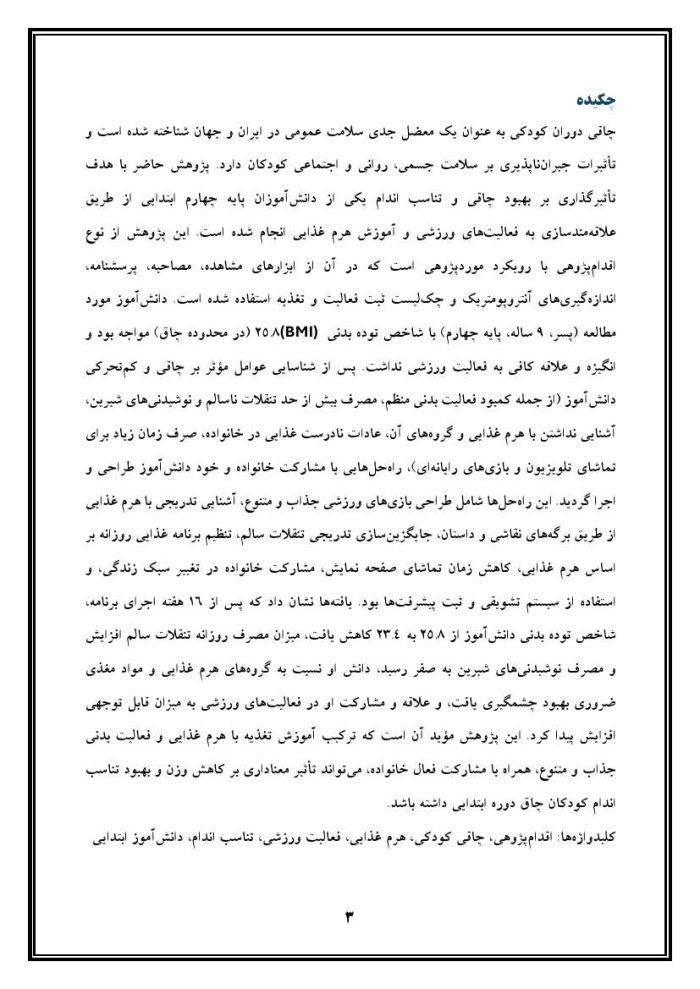 چکیده
چاقی دوران کودکی به عنوان یک معضل جدی سلامت عمومی در ایران و جهان شناخته شده است و
تأثیرات جبران‌ناپذیری بر سلامت جسمی، روانی و اجتماعی کودکان دارد. پژوهش حاضر با هدف
تأثیرگذاری بر بهبود چاقی و تناسب اندام یکی از دانش‌آموزان پایه چهارم ابتدایی از طریق
علاقه‌مندسازی به فعالیت‌های ورزشی و آموزش هرم غذایی انجام شده است. این پژوهش از نوع
اقدام‌پژوهی با رویکرد موردپژوهی است که در آن از ابزارهای مشاهده، مصاحبه، پرسشنامه،
اندازه‌گیری‌های آنتروپومتریک و چک‌لیست ثبت فعالیت و تغذیه استفاده شده است. دانش‌آموز مورد
مطالعه (پسر، ۹ ساله، پایه چهارم) با شاخص توده بدنی (BMI)۲۵.۸ (در محدوده چاق) مواجه بود و
انگیزه و علاقه کافی به فعالیت ورزشی نداشت. پس از شناسایی عوامل مؤثر بر چاقی و کم‌تحرکی
دانش‌آموز (از جمله کمبود فعالیت بدنی منظم، مصرف بیش از حد تنقلات ناسالم و نوشیدنی‌های شیرین،
آشنایی نداشتن با هرم غذایی و گروه‌های آن، عادات نادرست غذایی در خانواده، صرف زمان زیاد برای
تماشای تلویزیون و بازی‌های رایانه‌ای)، راه‌حل‌هایی با مشارکت خانواده و خود دانش‌آموز طراحی و
اجرا گردید. این راه‌حل‌ها شامل طراحی بازی‌های ورزشی جذاب و متنوع، آشنایی تدریجی با هرم غذایی
از طریق برگه‌های نقاشی و داستان، جایگزین‌سازی تدریجی تنقلات سالم، تنظیم برنامه غذایی روزانه بر
اساس هرم غذایی، کاهش زمان تماشای صفحه نمایش، مشارکت خانواده در تغییر سبک زندگی، و
استفاده از سیستم تشویقی و ثبت پیشرفت‌ها بود. یافته‌ها نشان داد که پس از ۱۶ هفته اجرای برنامه،
شاخص توده بدنی دانش‌آموز از ۲۵.۸ به ۲۳.۴ کاهش یافت، میزان مصرف روزانه تنقلات سالم افزایش
و مصرف نوشیدنی‌های شیرین به صفر رسید، دانش او نسبت به گروه‌های هرم غذایی و مواد مغذی
ضروری بهبود چشمگیری یافت، و علاقه و مشارکت او در فعالیت‌های ورزشی به میزان قابل توجهی
افزایش پیدا کرد. این پژوهش مؤید آن است که ترکیب آموزش تغذیه با هرم غذایی و فعالیت بدنی
جذاب و متنوع، همراه با مشارکت فعال خانواده، می‌تواند تأثیر معناداری بر کاهش وزن و بهبود تناسب
اندام کودکان چاق دوره ابتدایی داشته باشد.
کلیدواژه‌ها: اقدام‌پژوهی، چاقی کودکی، هرم غذایی، فعالیت ورزشی، تناسب اندام، دانش‌آموز ابتدایی
۳